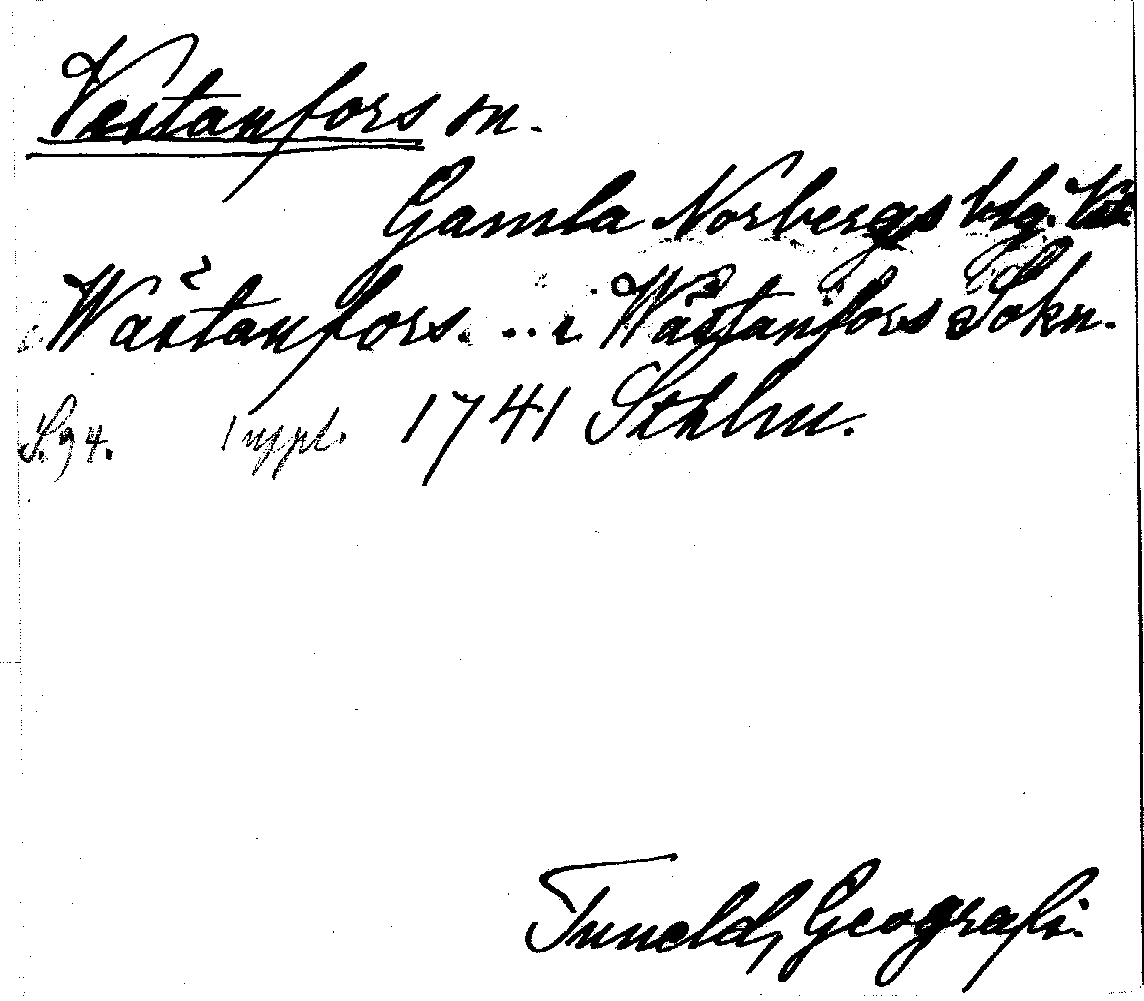 Vestanfors sn.
Gamla Norbergs bslg. Vstm.
Wästanfors. ... i Wästanfors Sokn.
S. 94. 1 uppl. 1741 Sthlm.
Tuneld, Geografi.